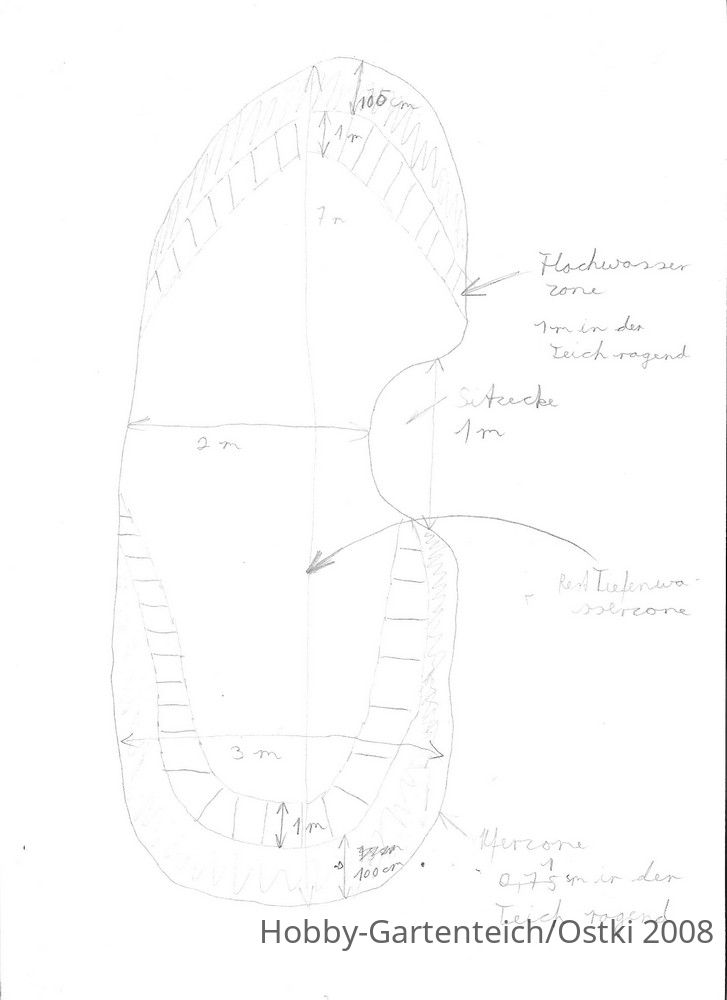 105cm
1m
7m
Flachwasser
zone
1m in der
Teich ragend
Sitzecke
1m
2 m
Rest Tiefenwa-
sserzone
3 m
1m
100cm
Uferzone
1
0,75 m in den
Teich ragend
Hobby-Gartenteich/Ostki 2008